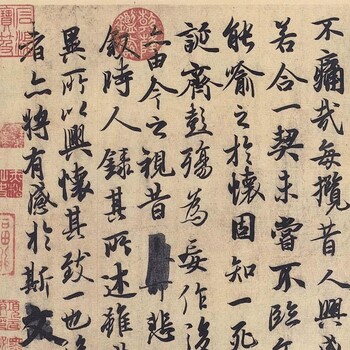 不痛哉每攬昔人興感
若合一契未嘗不臨
能喻之於懷固知一死
誕齊彭殤為妄作後
亦由今之視昔悲
敘時人錄其所述雖
異所以興懷其致一也
者亦將有感於斯文